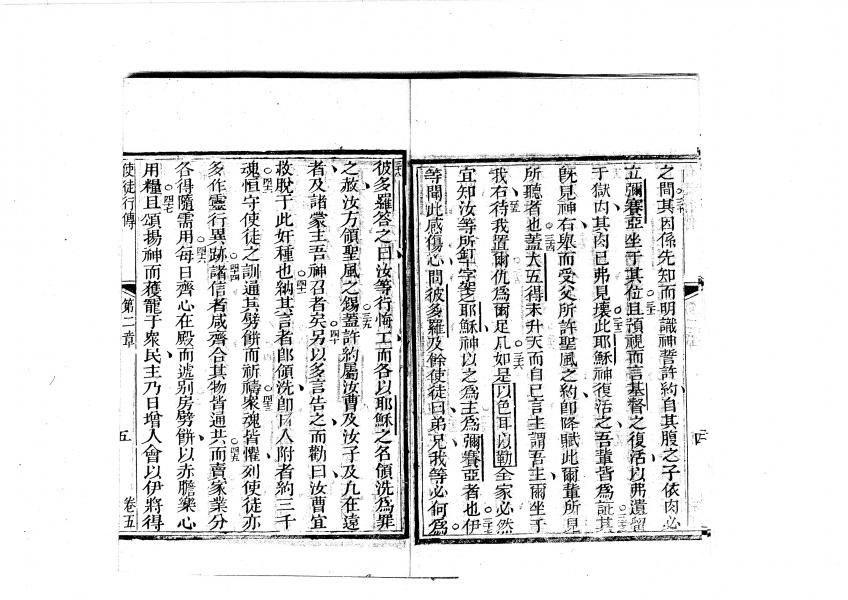 之間其因係先知而明識神誓許約自其腹之子依肉必
立彌賽亞坐于其位且預視而言基督之復活以弗遺留
于獄肉其肉已弗見壞此耶穌神復活之吾輩皆為証其
既見神右舉而受父所許聖風之約即降賦此爾輩所見
所聽者也蓋大五得未升天而自已言主謂吾主爾坐于
我右待我置爾仇為爾足几如是以色耳以勒全家必然
宜知汝等所釘十字箋之耶穌神以之為主為彌賽亞者也伊
等聞此感傷心問彼多羅及餘使徒曰弟兄我等必何為
彼多羅答之曰汝等行悔工而各以耶穌之名領洗為罪
之赦汝方領聖風之錫蓋許約屬汝曹及汝子及凡在遠
者及諸蒙主吾神召者矣另以多言告之而勸曰汝曹宜
救脫于此奸種也納其言者即領洗即日人附者約三千
魂恒守使徒之訓通其劈餅而祈禱眾魂皆懼列使徒亦
多作靈行異跡諸信者咸齊合其物皆通共而賣家業分
各得隨需用每日齊心在殿而號别房劈餅以赤膽樂心
用糧且頌揚神而獲寵于衆民主乃日增人會以伊將得
使徒行傳 第二章 五 卷五